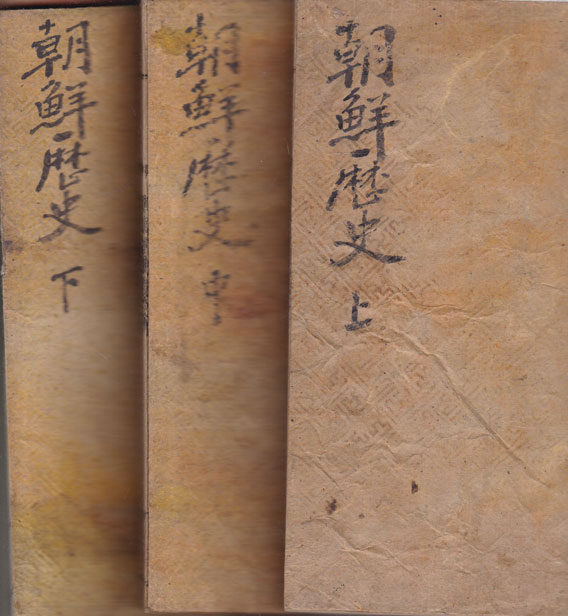 朝鮮歷史 上
朝鮮歷史 中
朝鮮歷史 下